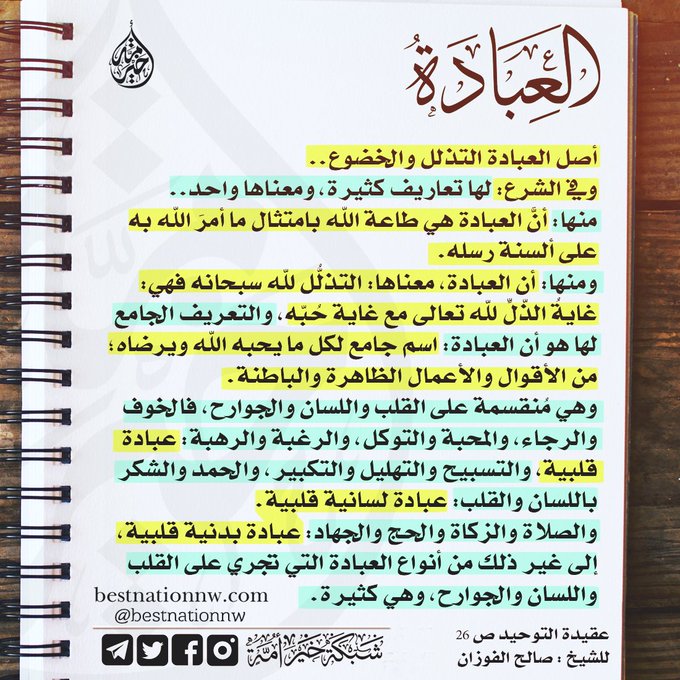 العِبَادَةُ
خير أمة
أصل العبادة التذلل والخضوع..
وفي الشرع: لها تعاريف كثيرة، ومعناها واحد..
منها: أنَّ العبادة هي طاعة الله بامتثال ما أمرَ الله به
على ألسنة رسله.
ومنها: أن العبادة، معناها: التذلُّل لله سبحانه فهي:
غايةُ الذّلِّ لله تعالى مع غاية حُبّه، والتعريف الجامع
لها هو أن العبادة: اسم جامع لكل ما يحبه الله ويرضاه؛
من الأقوال والأعمال الظاهرة والباطنة.
وهي مُنقسمة على القلب واللسان والجوارح، فالخوف
والرجاء، والمحبة والتوكل، والرغبة والرهبة: عبادة
قلبية، والتسبيح والتهليل والتكبير، والحمد والشكر
باللسان والقلب: عبادة لسانية قلبية.
والصلاة والزكاة والحج والجهاد: عبادة بدنية قلبية،
إلى غير ذلك من أنواع العبادة التي تجري على القلب
واللسان والجوارح، وهي كثيرة.
bestnationnw.com
@bestnationnw
شبكة خير أمة
عقيدة التوحيد ص 26
للشيخ : صالح الفوزان